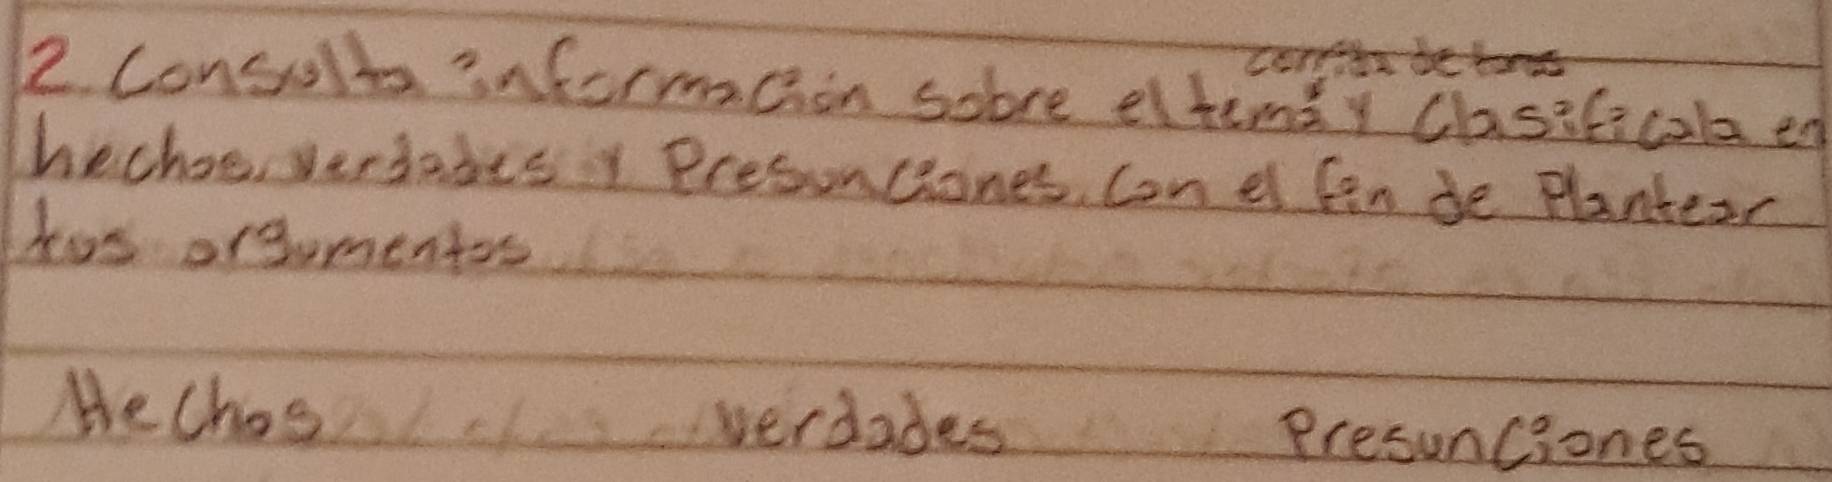 corrida de toros
2. Consulta información sobre el tema y Clasificala en
hechos, verdades y Presunciones. Con el fin de Plantear
tus argumentos
Hechos verdades Presunciones